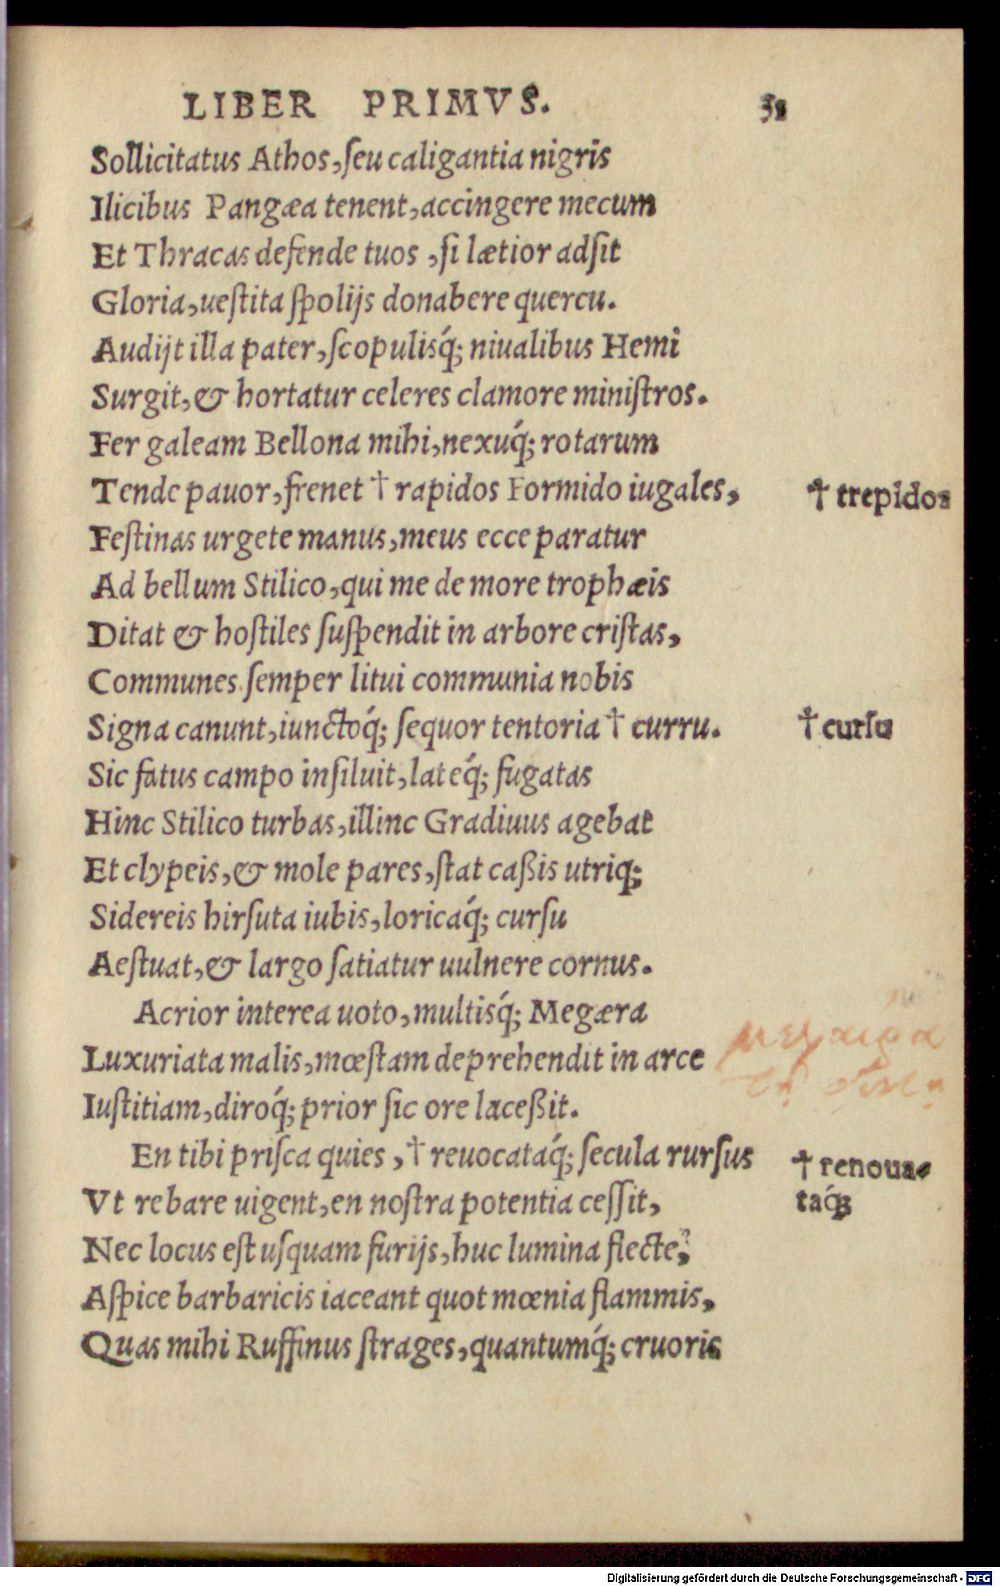 LIBER PRIMVS.
Sollicitatus Athos, ſeu caligantia nigris
Ilicibus Pangæa tenent, accingere mecum
Et Thracas defende tuos, ſi lætior adſit
Gloria, ueſtita ſpolijs donabere quercu.
Audijt illa pater, ſcopulisq́; niualibus Hemi
Surgit, & hortatur celeres clamore miniſtros.
Fer galeam Bellona mihi, nexuq́; rotarum
Tende pauor, frenet † rapidos Formido iugales,
† trepidos
Feſtinas urgete manus, meus ecce paratur
Ad bellum Stilico, qui me de more trophæis
Ditat & hoſtiles ſuſpendit in arbore criſtas,
Communes ſemper litui communia nobis
Signa canunt, iunctoq́; ſequor tentoria † curru.
† curſu
Sic fatus campo inſiluit, lateq́; fugatas
Hinc Stilico turbas, illinc Gradiuus agebat
Et clypeis, & mole pares, ſtat caßis utriq;
Sidereis hirſuta iubis, loricaq́; curſu
Aeſtuat, & largo ſatiatur uulnere cornus.
Acrior interea uoto, multisq́; Megæra
Luxuriata malis, mœſtam deprehendit in arce
μεγαιρα
Iuſtitiam, diroq́; prior ſic ore laceßit.
En tibi priſca quies, † reuocataq́; ſecula rurſus
† renoua-
taq́;
Vt rebare uigent, en noſtra potentia ceſſit,
Nec locus eſt uſquam furijs, huc lumina flecte,
Aſpice barbaricis iaceant quot mœnia flammis,
Quas mihi Ruffinus ſtrages, quantumq́; cruoris
Digitalisierung gefördert durch die Deutsche Forschungsgemeinschaft - DFG